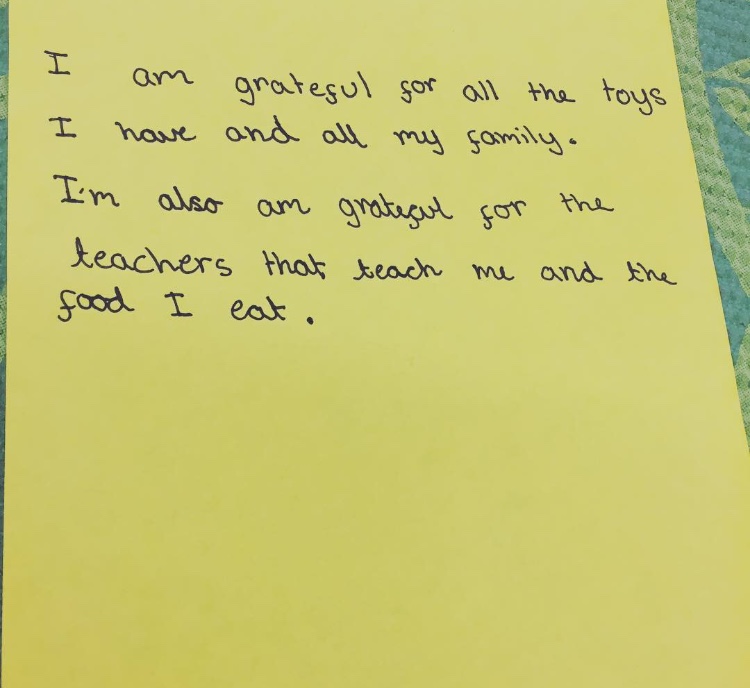 I am grateful for all the toys
I have and all my family.
I'm also am grateful for the
teachers that teach me and the
food I eat.